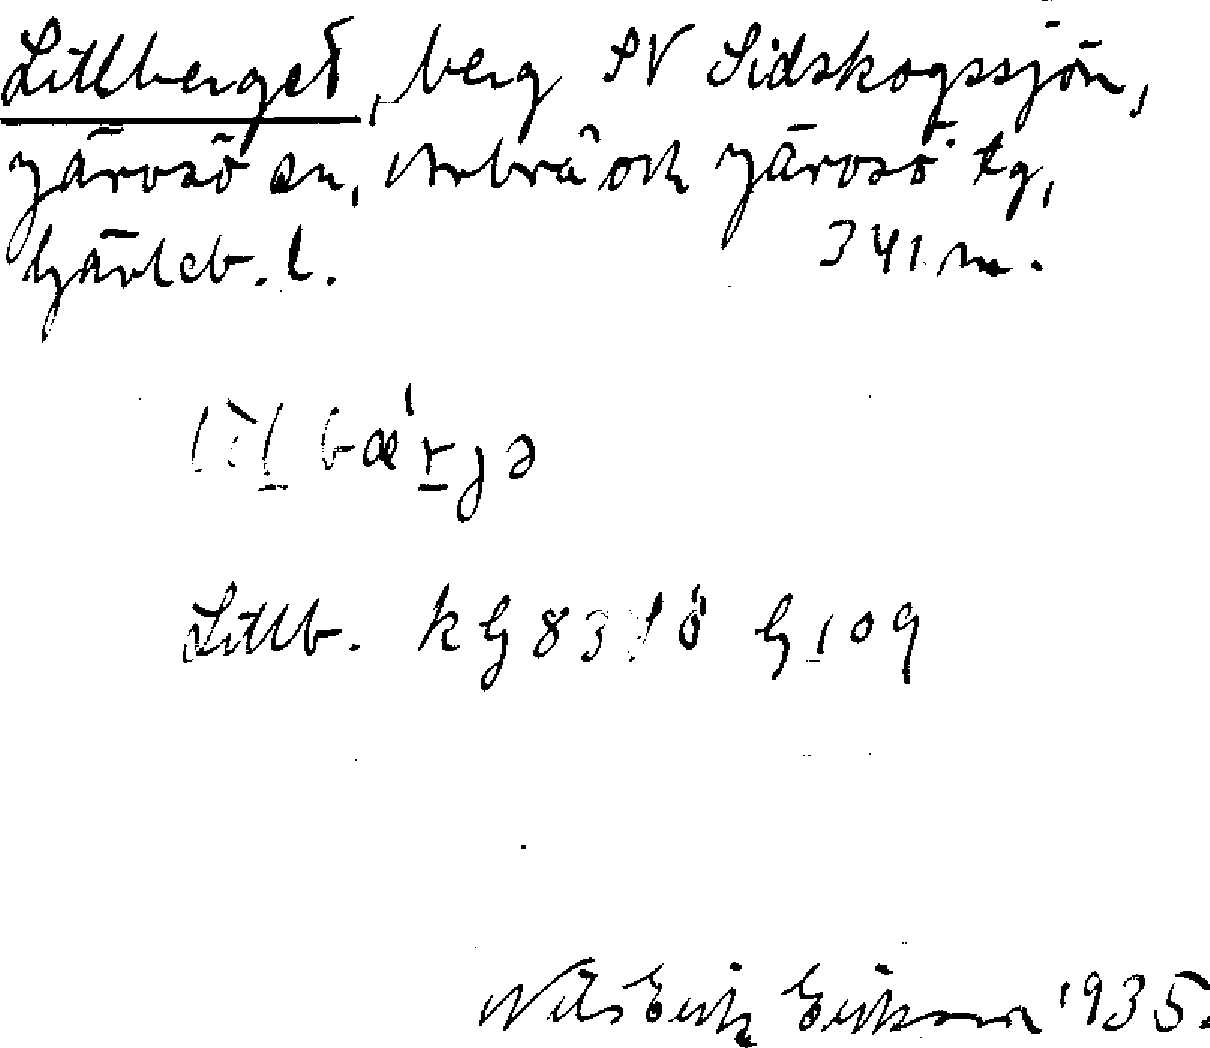 Lillberget, berg SV Sidskogssjön,
Järvsö sn, Arbrå och Järvsö tg,
Gävleb. l. 341 m.
lɪl bæ'rjə
Lillb. kG 83 lö G 109
Nils Erik Erikson 1935.